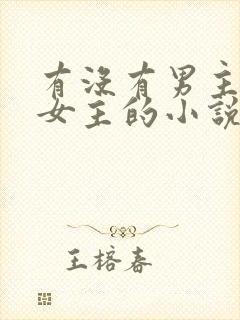 有没有男主
女主的小說
王榕春